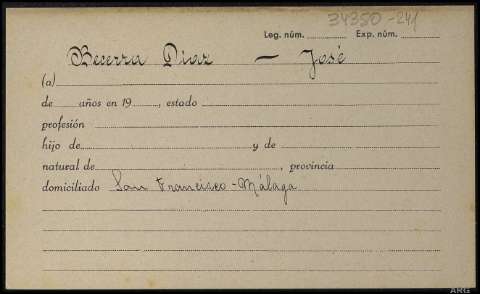 34350-241
Leg. núm. Exp. núm.
Becerra Diaz — José
(a)
de años en 19 , estado
profesión
hijo de y de
natural de , provincia
domiciliado San Francisco-Málaga
ARG